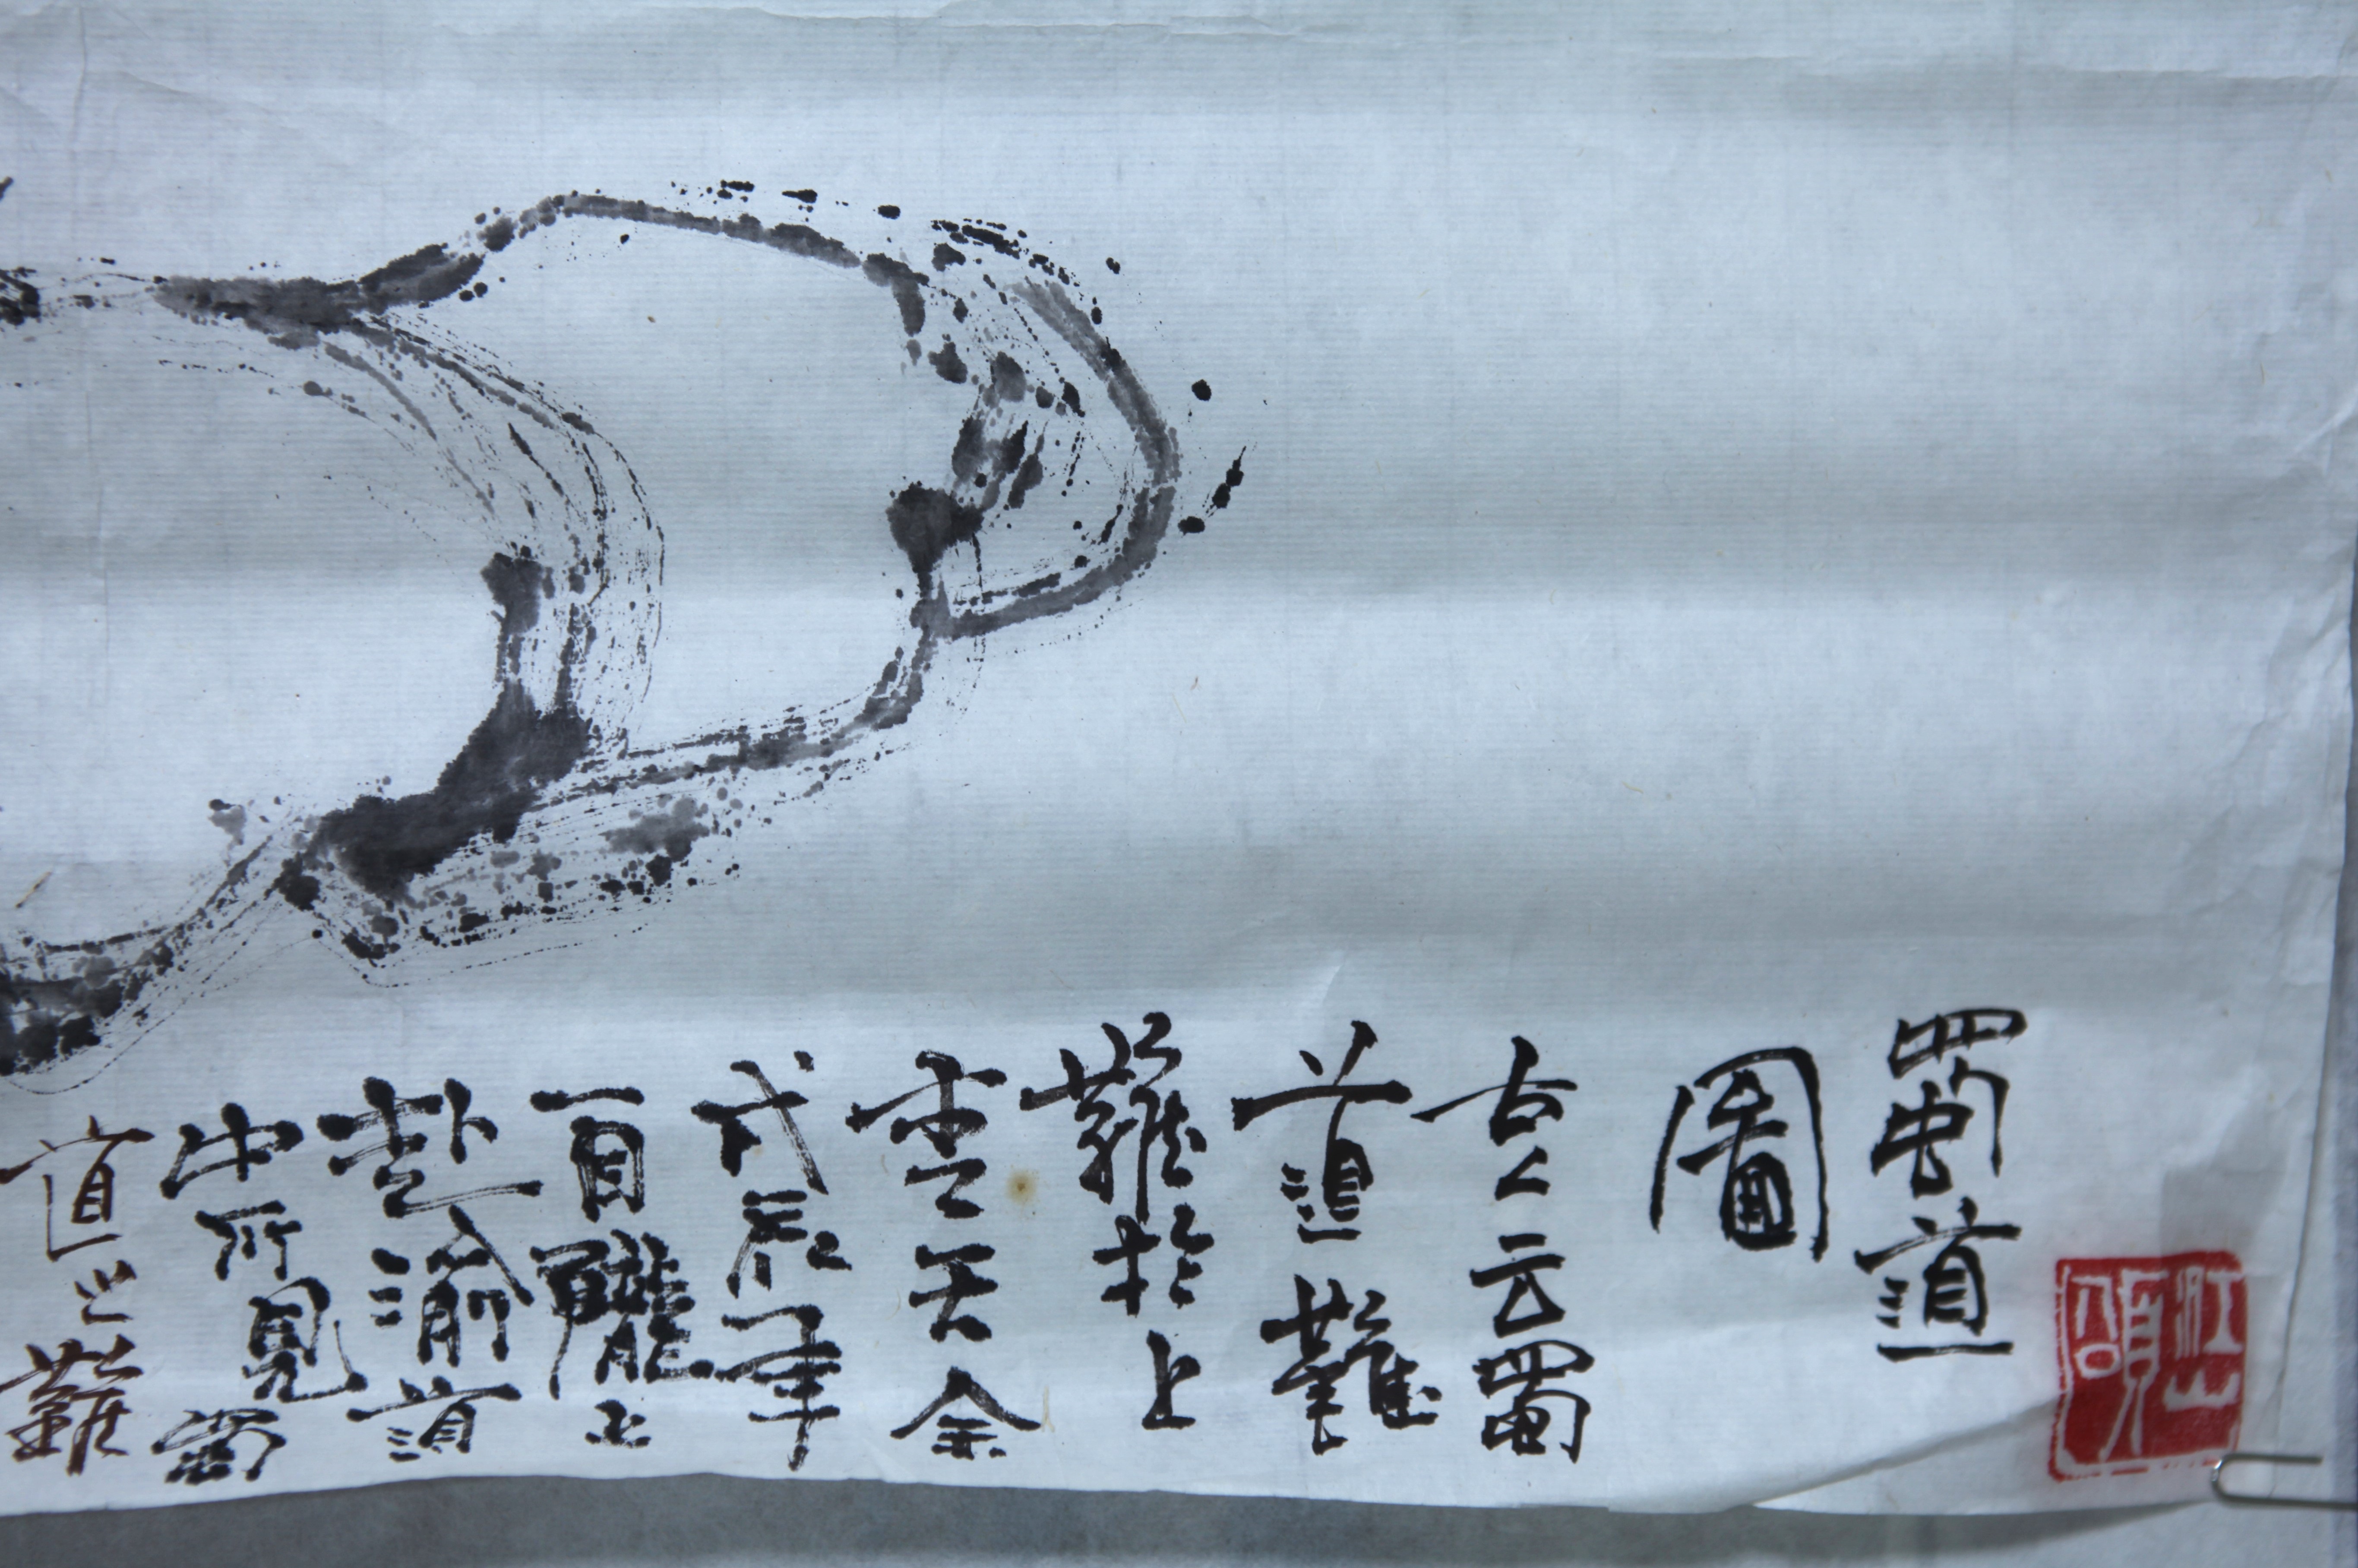 蜀道
圖
古人云蜀
道難
難於上
青天余
戊辰年
自隴上
赴渝道
中所見蜀
道之難
江山頌